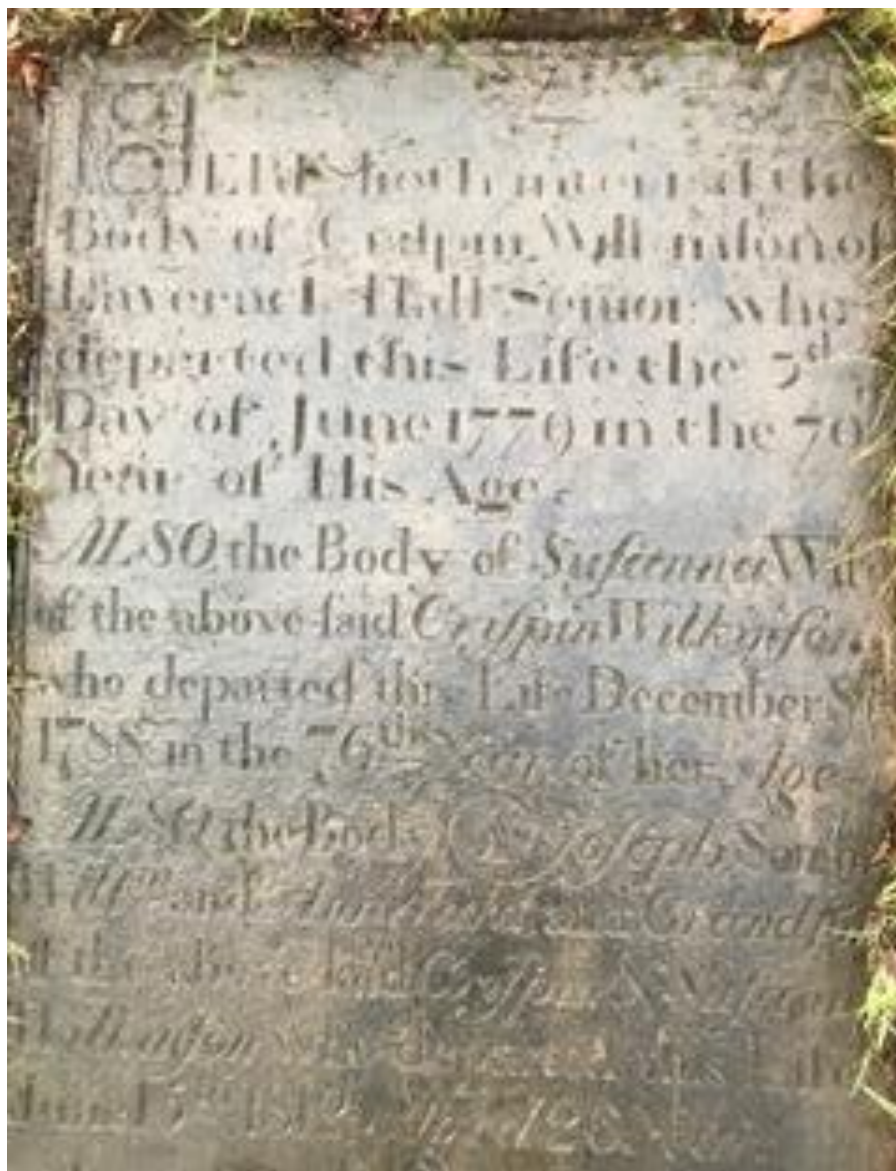 HERE lieth interred the
Body of Crispin Wilkinson of
Laverack Hall Senior who
departed this Life the 3d
Day of June 1779 in the 70
Year of His Age.
ALSO the Body of Suſanna Wife
of the above ſaid Criſpin Wilkinſon
who departed this Life December
1788 in the 76th Year of her Age
ALSO the Body of Joſeph Son of
Willm and Grandſon
of the above ſaid Criſpin &
Wilkinſon who departed this Life